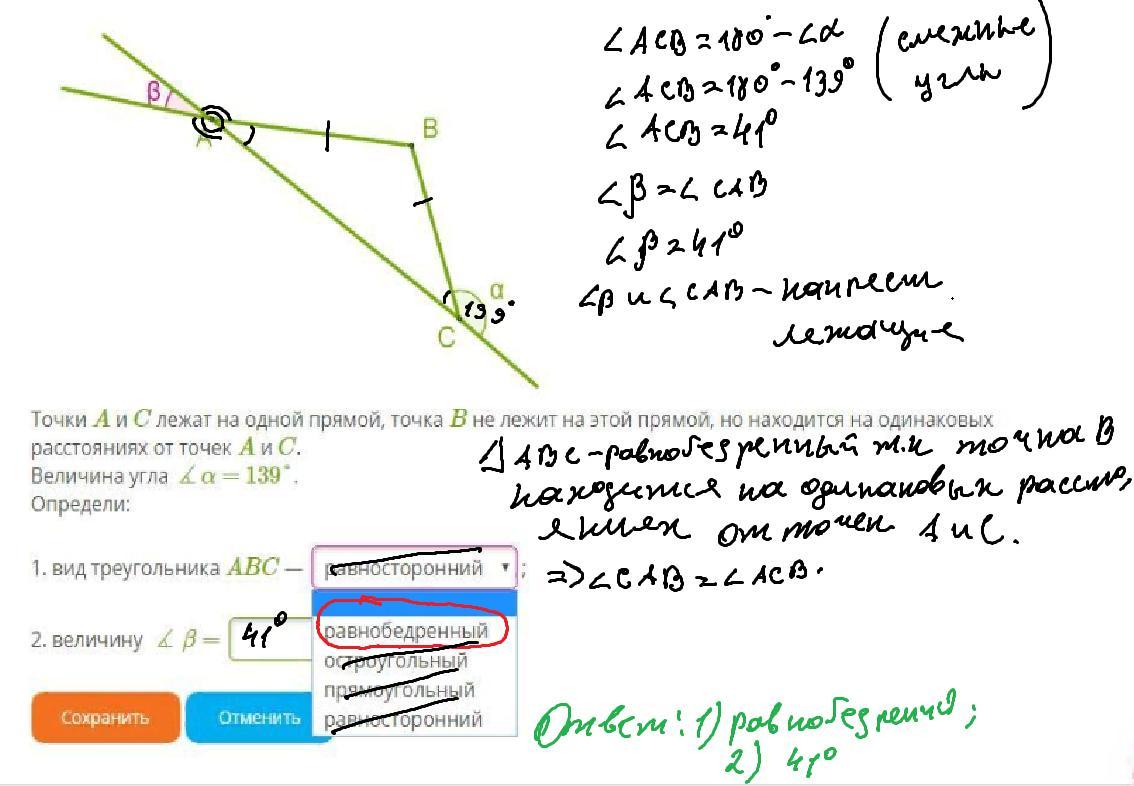 ∠ACB=180°-∠α (смежные
∠ACB=180°-139° углы)
∠ACB=41°
∠β=∠CAB
∠β=41°
∠β и ∠CAB - накрест
лежащие
β
A
B
α
139°
C
Точки A и C лежат на одной прямой, точка B не лежит на этой прямой, но находится на одинаковых
расстояниях от точек A и C.
Величина угла ∡α = 139°.
Определи:
△ABC - равнобедренный т.к точка B
находится на одинаковых рассто,
яниях от точек A и C.
=> ∠CAB=∠ACB.
1. вид треугольника ABC — равносторонний ;
равнобедренный
2. величину ∡ β = 41°
остроугольный
прямоугольный
равносторонний
Сохранить
Отменить
Ответ: 1) равнобедренный;
2) 41°